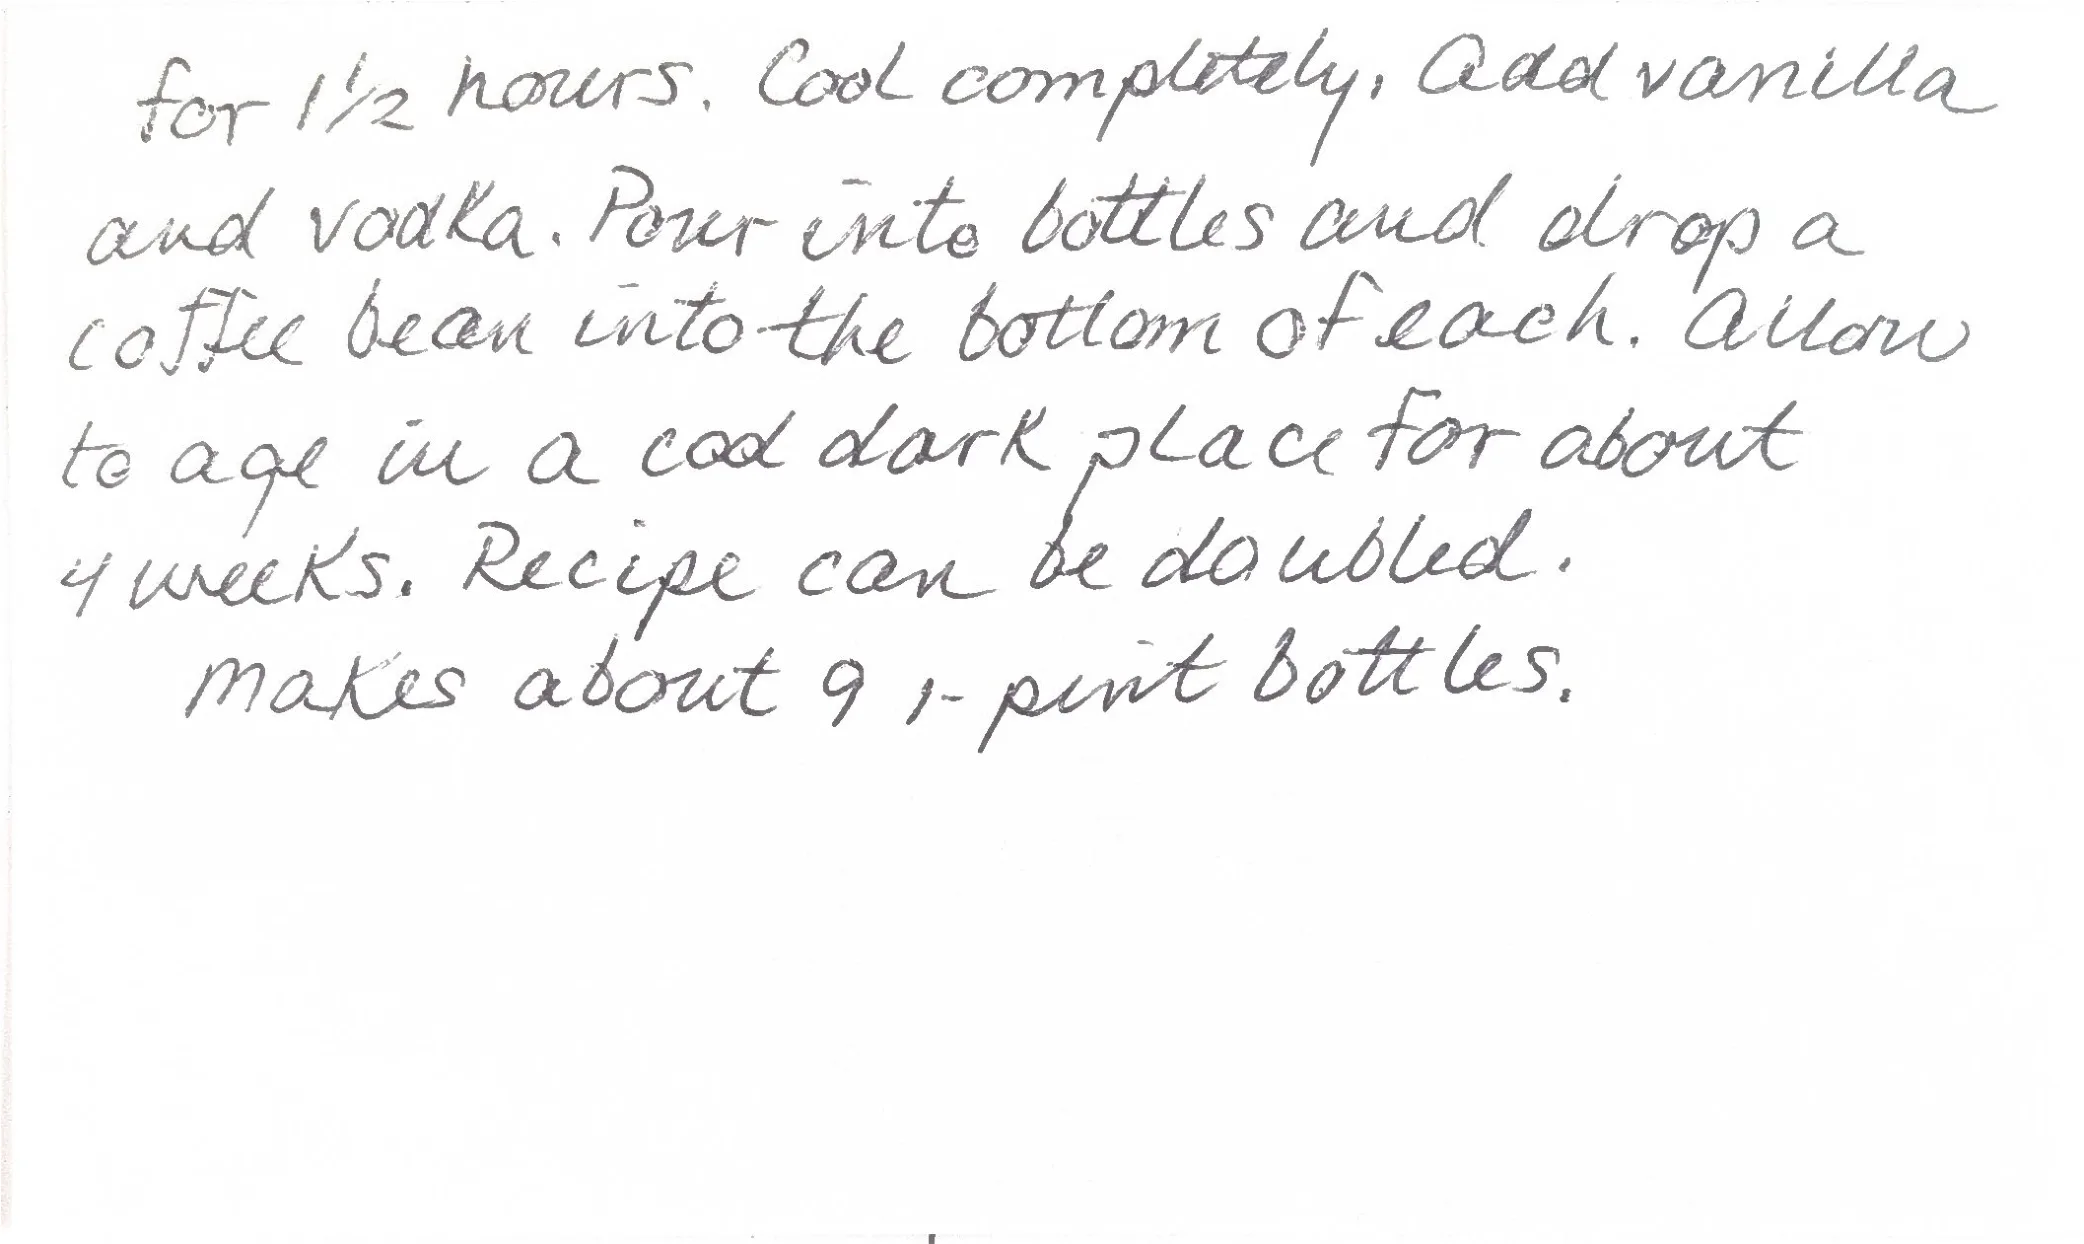 for 1½ hours. Cool completely. Add vanilla
and vodka. Pour into bottles and drop a
coffee bean into the bottom of each. Allow
to age in a cool dark place for about
4 weeks. Recipe can be doubled.
Makes about 9 1-pint bottles.